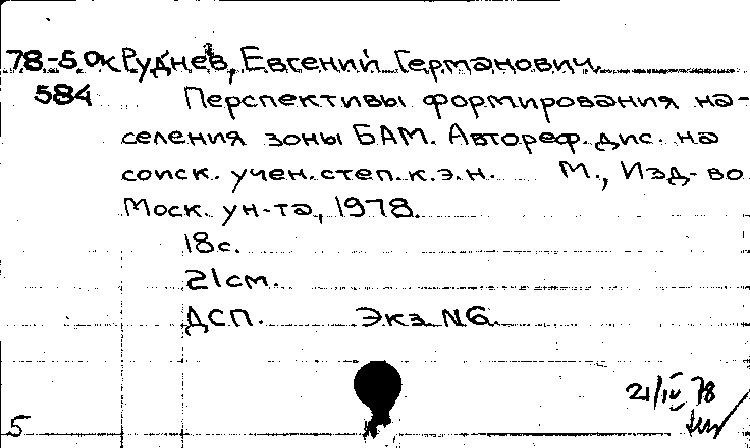 78-5 Ок Руднев, Евгений Германович.
584 Перспективы формирования на-
селения зоны БАМ. Автореф. дис. на
соиск. учен. степ. к.э.н. М., Изд-во
Моск. ун-та, 1978.
18 с.
21 см.
ДСП. Экз. №6.
21/IV 78
5